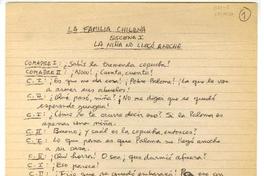 ①
LA FAMILIA CHILENA
ESCENA I
LA NIÑA NO LLEGÓ ANOCHE
COMADRE I: ¿Sabís la tremenda copucha?
COMADRE II: ¡Noo! ¡Cuenta, cuenta!
C. I: ¡Es que no te digo! ¡Pobre Paloma! ¡Lo que le van
a armar sus abuelos!
C. II: ¿Qué pasó, niña? ¡No me digas que se quedó
esperando guagua!
C. I: ¡Cómo se te ocurre decir eso! Si la Paloma es
apenas una niña.
C. II: Bueno, ¿y cuál es la copucha, entonces?
C. I: Lo que pasa es que Paloma no llegó anoche
a su casa.
C. II: ¡Qué horror! O sea, ¿que durmió afuera?
C. I: Eso parece!